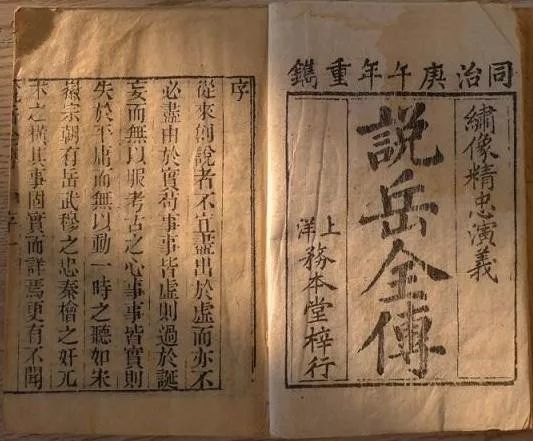 同治庚午年重鐫
繡像精忠演義
説岳全傳
上洋務本堂梓行
序
從來創說者不宜盡出於虛而亦不
必盡由於實苟事事皆虛則過於誕
妄而無以服考古之心事事皆實則
失於平庸而無以動一時之聽如宋
徽宗朝有岳武穆之忠秦檜之奸兀
朮之橫其事固實而詳焉更有不聞